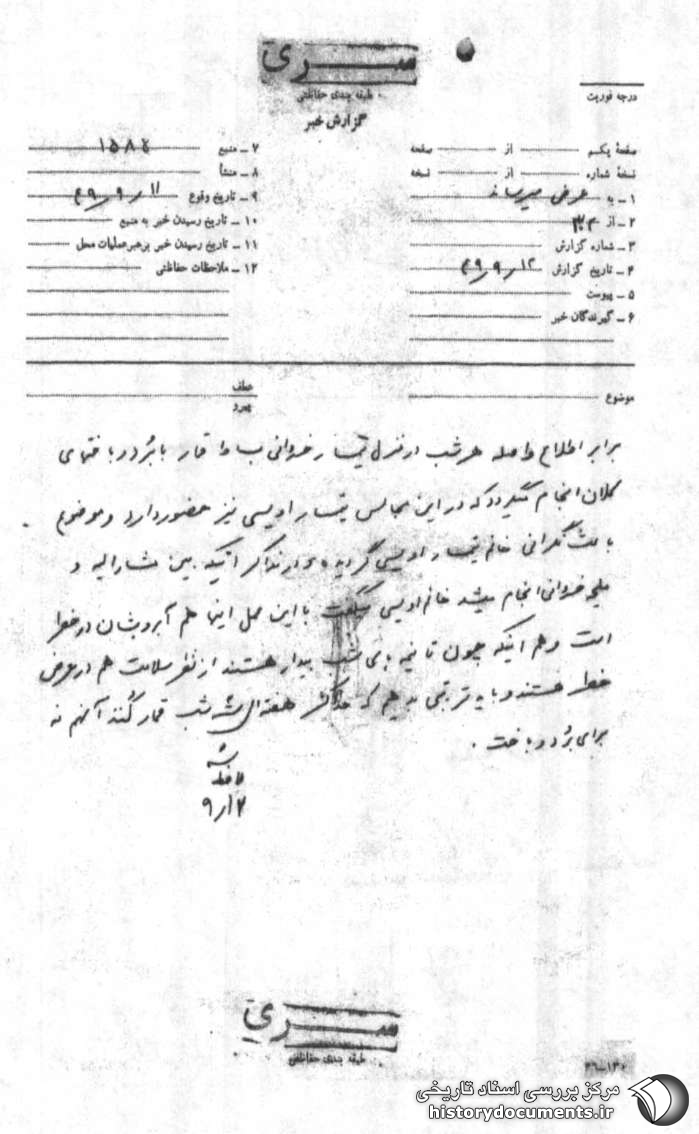 سری
طبقه بندی حفاظتی
گزارش خبر
درجه فوریت
صفحهٔ یکم از صفحه
نسخهٔ شماره از نسخه
۱ ـ به عرض میرساند
۲ ـ از
۳ ـ شماره گزارش
۴ ـ تاریخ گزارش ۱۲ ر ۹ ر ۴۹
۵ ـ پیوست
۶ ـ گیرندگان خبر
۷ ـ منبع
۸ ـ منشأ
۹ ـ تاریخ وقوع ۱۱ ر ۹ ر ۴۹
۱۰ ـ تاریخ رسیدن خبر به منبع
۱۱ ـ تاریخ رسیدن خبر برهبرعملیات محل
۱۲ ـ ملاحظات حفاظتی
موضوع
عطف
پیرو
برابر اطلاع واصله هر شب در منزل تیمسار قمار با برد و باختهای
کلان انجام میگیرد که در این مجالس تیمسار اویسی نیز حضور دارد و موضوع
باعث نگرانی خانم تیمسار اویسی گردیده و در مذاکراتیکه بین مشارالیه و
انجام میشد خانم اویسی میگفت با این عمل اینها هم آبرویشان در خطر
است و هم اینکه چون تا نیمه های شب بیدار هستند از نظر سلامت هم در معرض
خطر هستند و باید ترتیبی بدهیم که حداکثر هفته ای شب قمار کنند آنهم نه
برای برد و باخت .
۱۲ر۹
سری
طبقه بندی حفاظتی
مرکز بررسی اسناد تاریخی
historydocuments.ir